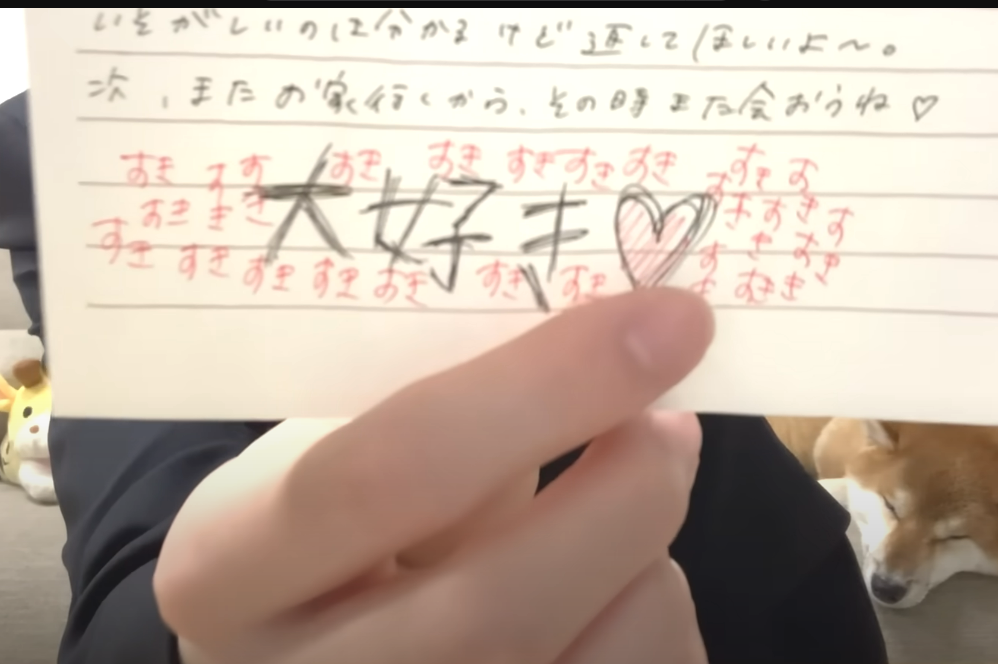 いそがしいのは分かるけど返してほしいよ〜。
次、またお家行くから、その時また会おうね♡
すき すき すき すき すき すき すき すき
大好き♡
すき すき すき
すき すき すき すき すき すき すき